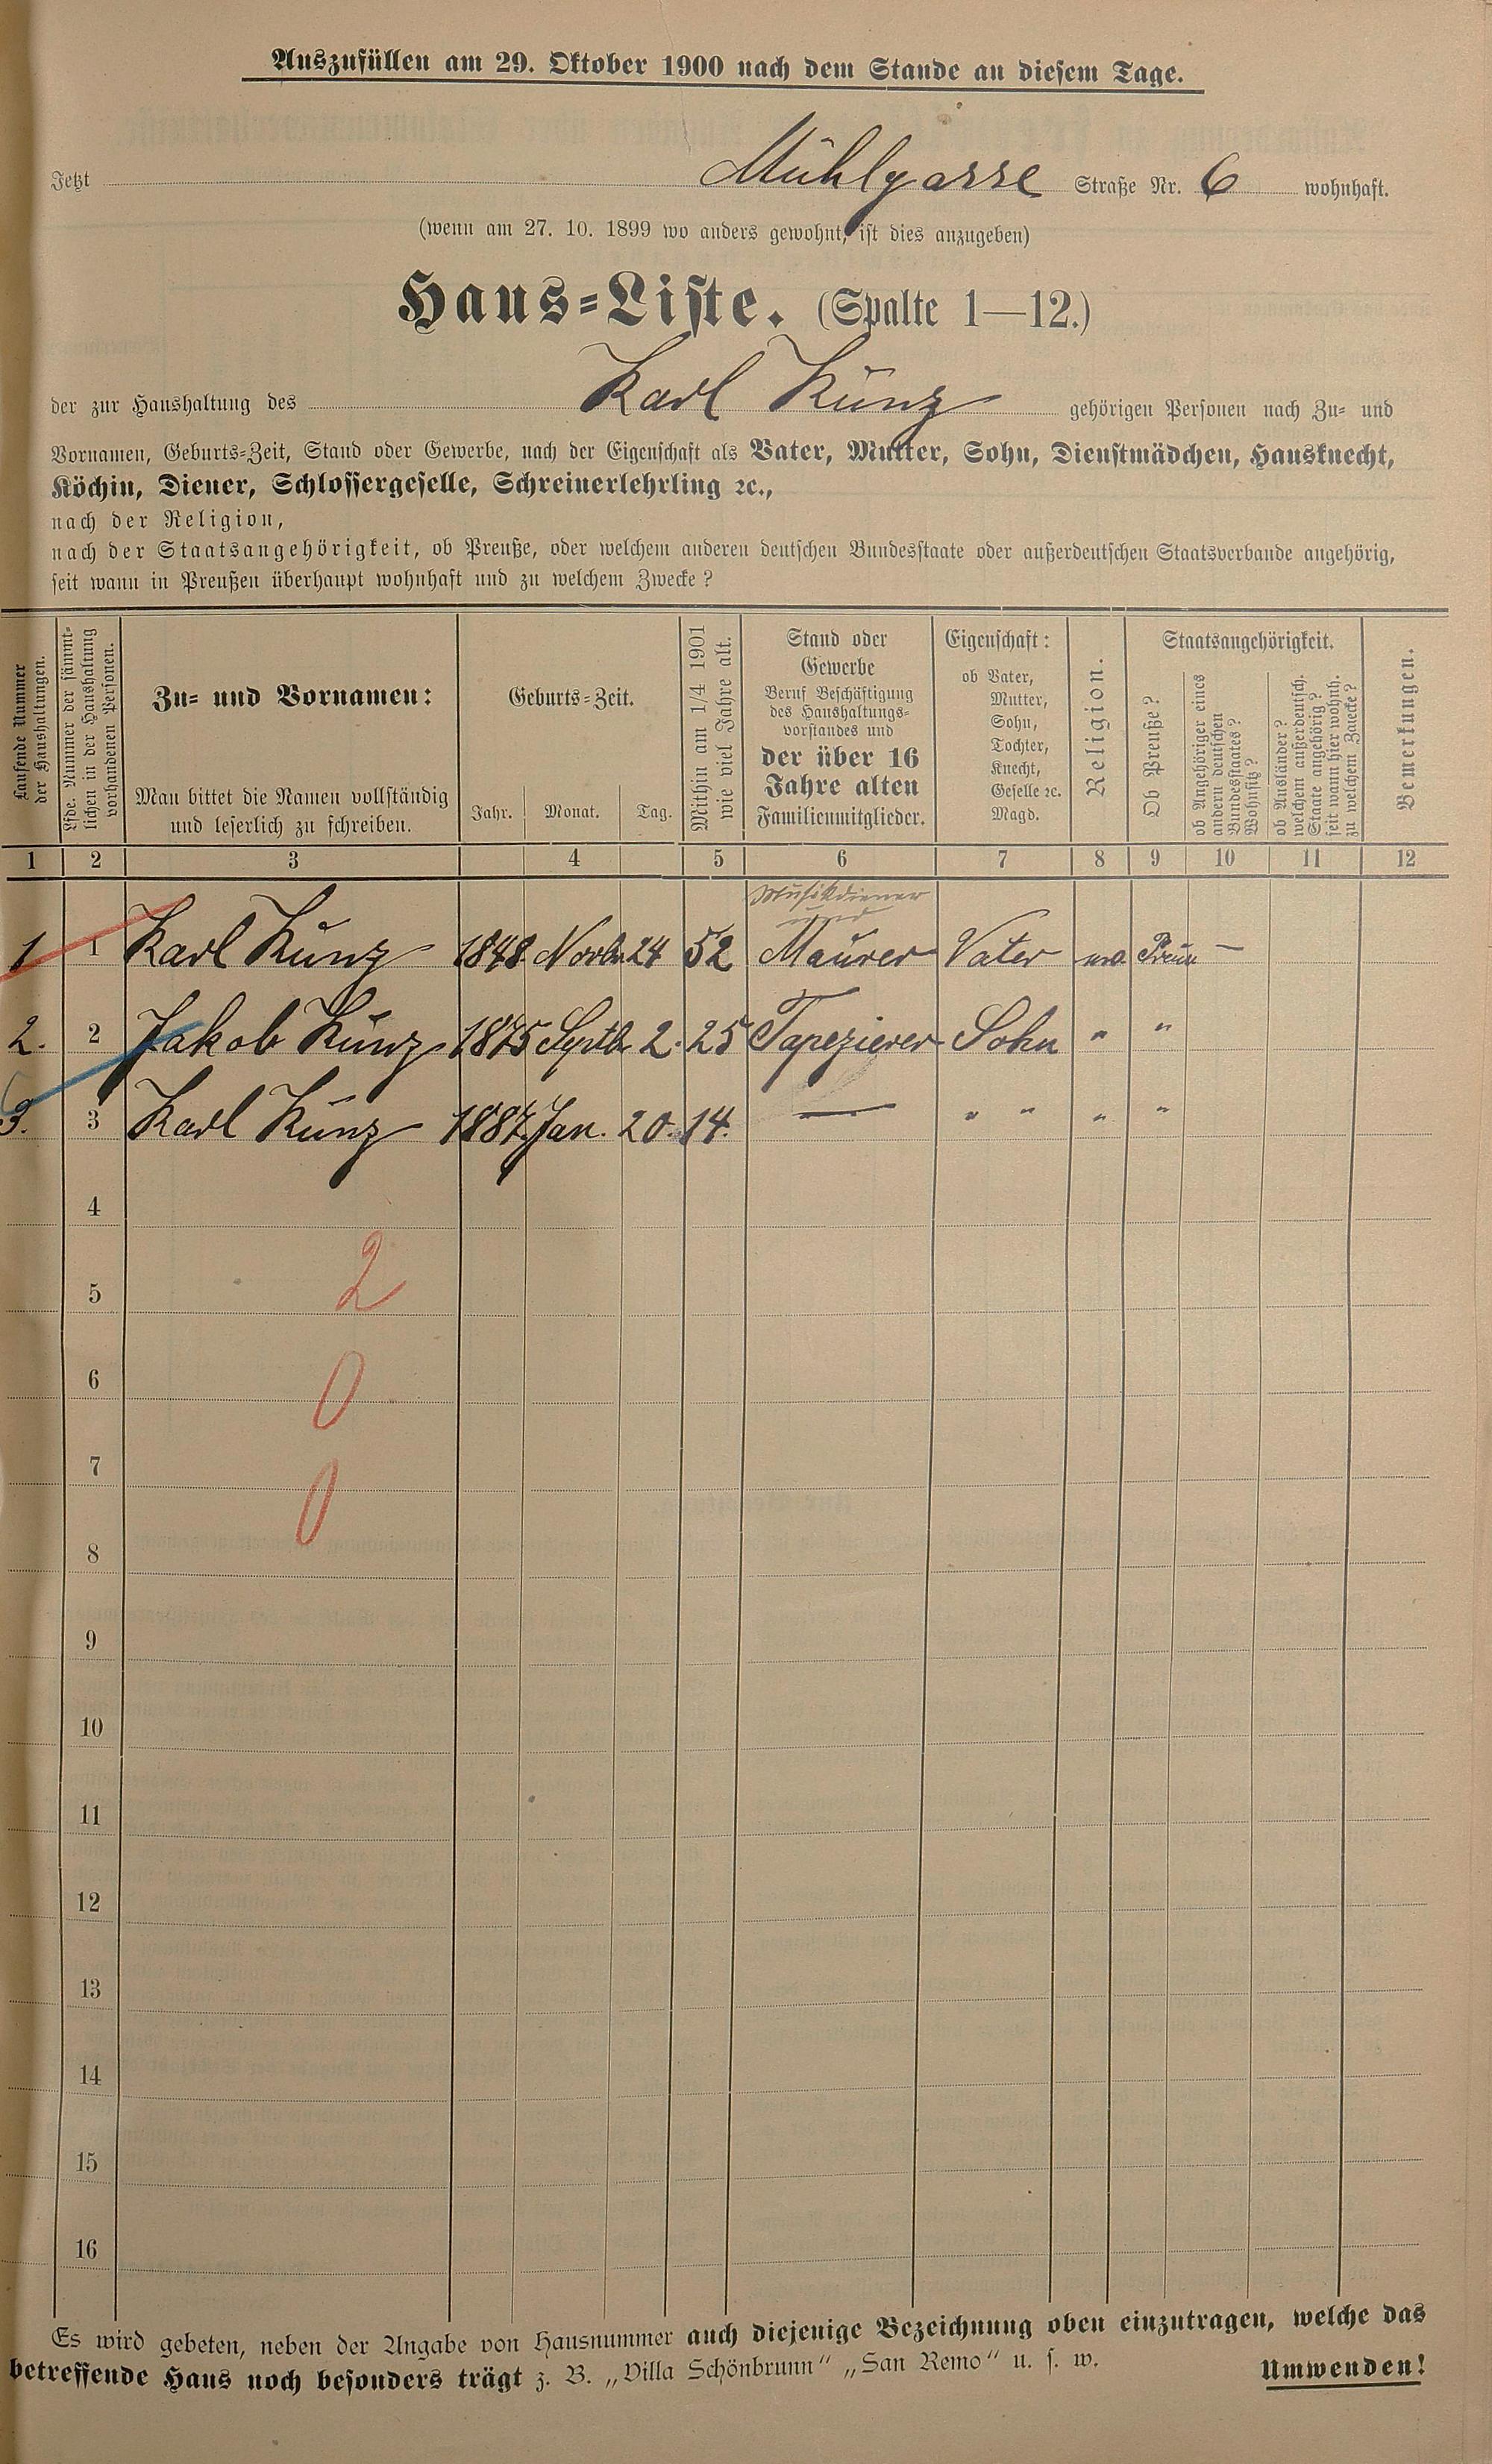 Auszufüllen am 29. Oktober 1900 nach dem Stande an diesem Tage.
Jetzt Mühlgasse Straße Nr. 6 wohnhaft.
(wenn am 27. 10. 1899 wo anders gewohnt, ist dies anzugeben)
Haus-Liste. (Spalte 1—12.)
der zur Haushaltung des Karl Kunz gehörigen Personen nach Zu- und
Vornamen, Geburts-Zeit, Stand oder Gewerbe, nach der Eigenschaft als Vater, Mutter, Sohn, Dienstmädchen, Hausknecht,
Köchin, Diener, Schlossergeselle, Schreinerlehrling ꝛc.,
nach der Religion,
nach der Staatsangehörigkeit, ob Preuße, oder welchem anderen deutschen Bundesstaate oder außerdeutschen Staatsverbande angehörig,
seit wann in Preußen überhaupt wohnhaft und zu welchem Zwecke?
Laufende Nummer
der Haushaltungen.
Lfde. Nummer der sämmt-
lichen in der Haushaltung
vorhandenen Personen.
Zu- und Vornamen:
Man bittet die Namen vollständig
und leserlich zu schreiben.
Geburts-Zeit.
Jahr. Monat. Tag.
Mithin am 1/4 1901
wie viel Jahre alt.
Stand oder
Gewerbe
Beruf Beschäftigung
des Haushaltungs-
vorstandes und
der über 16
Jahre alten
Familienmitglieder.
Eigenschaft:
ob Vater,
Mutter,
Sohn,
Tochter,
Knecht,
Geselle ꝛc.
Magd.
Religion.
Staatsangehörigkeit.
Ob Preuße?
ob Angehöriger eines
andern deutschen
Bundesstaates?
Wohnsitz?
ob Ausländer?
welchem außerdeutsch.
Staate angehörig?
seit wann hier wohnh.
zu welchem Zwecke?
Bemerkungen.
1 2 3 4 5 6 7 8 9 10 11 12
Musikdiener
und
1 1 Karl Kunz 1848 Novbr 24 52 Maurer Vater Preuß —
2. 2 Jakob Kunz 1875 Septbr 2. 25 Tapezierer Sohn " "
3. 3 Karl Kunz 1887. Jan. 20. 14. — " " " "
4
2
5
6
0
7
0
8
9
10
11
12
13
14
15
16
Es wird gebeten, neben der Angabe von Hausnummer auch diejenige Bezeichnung oben einzutragen, welche das
betreffende Haus noch besonders trägt z. B. „Villa Schönbrunn“ „San Remo“ u. s. w. Umwenden!